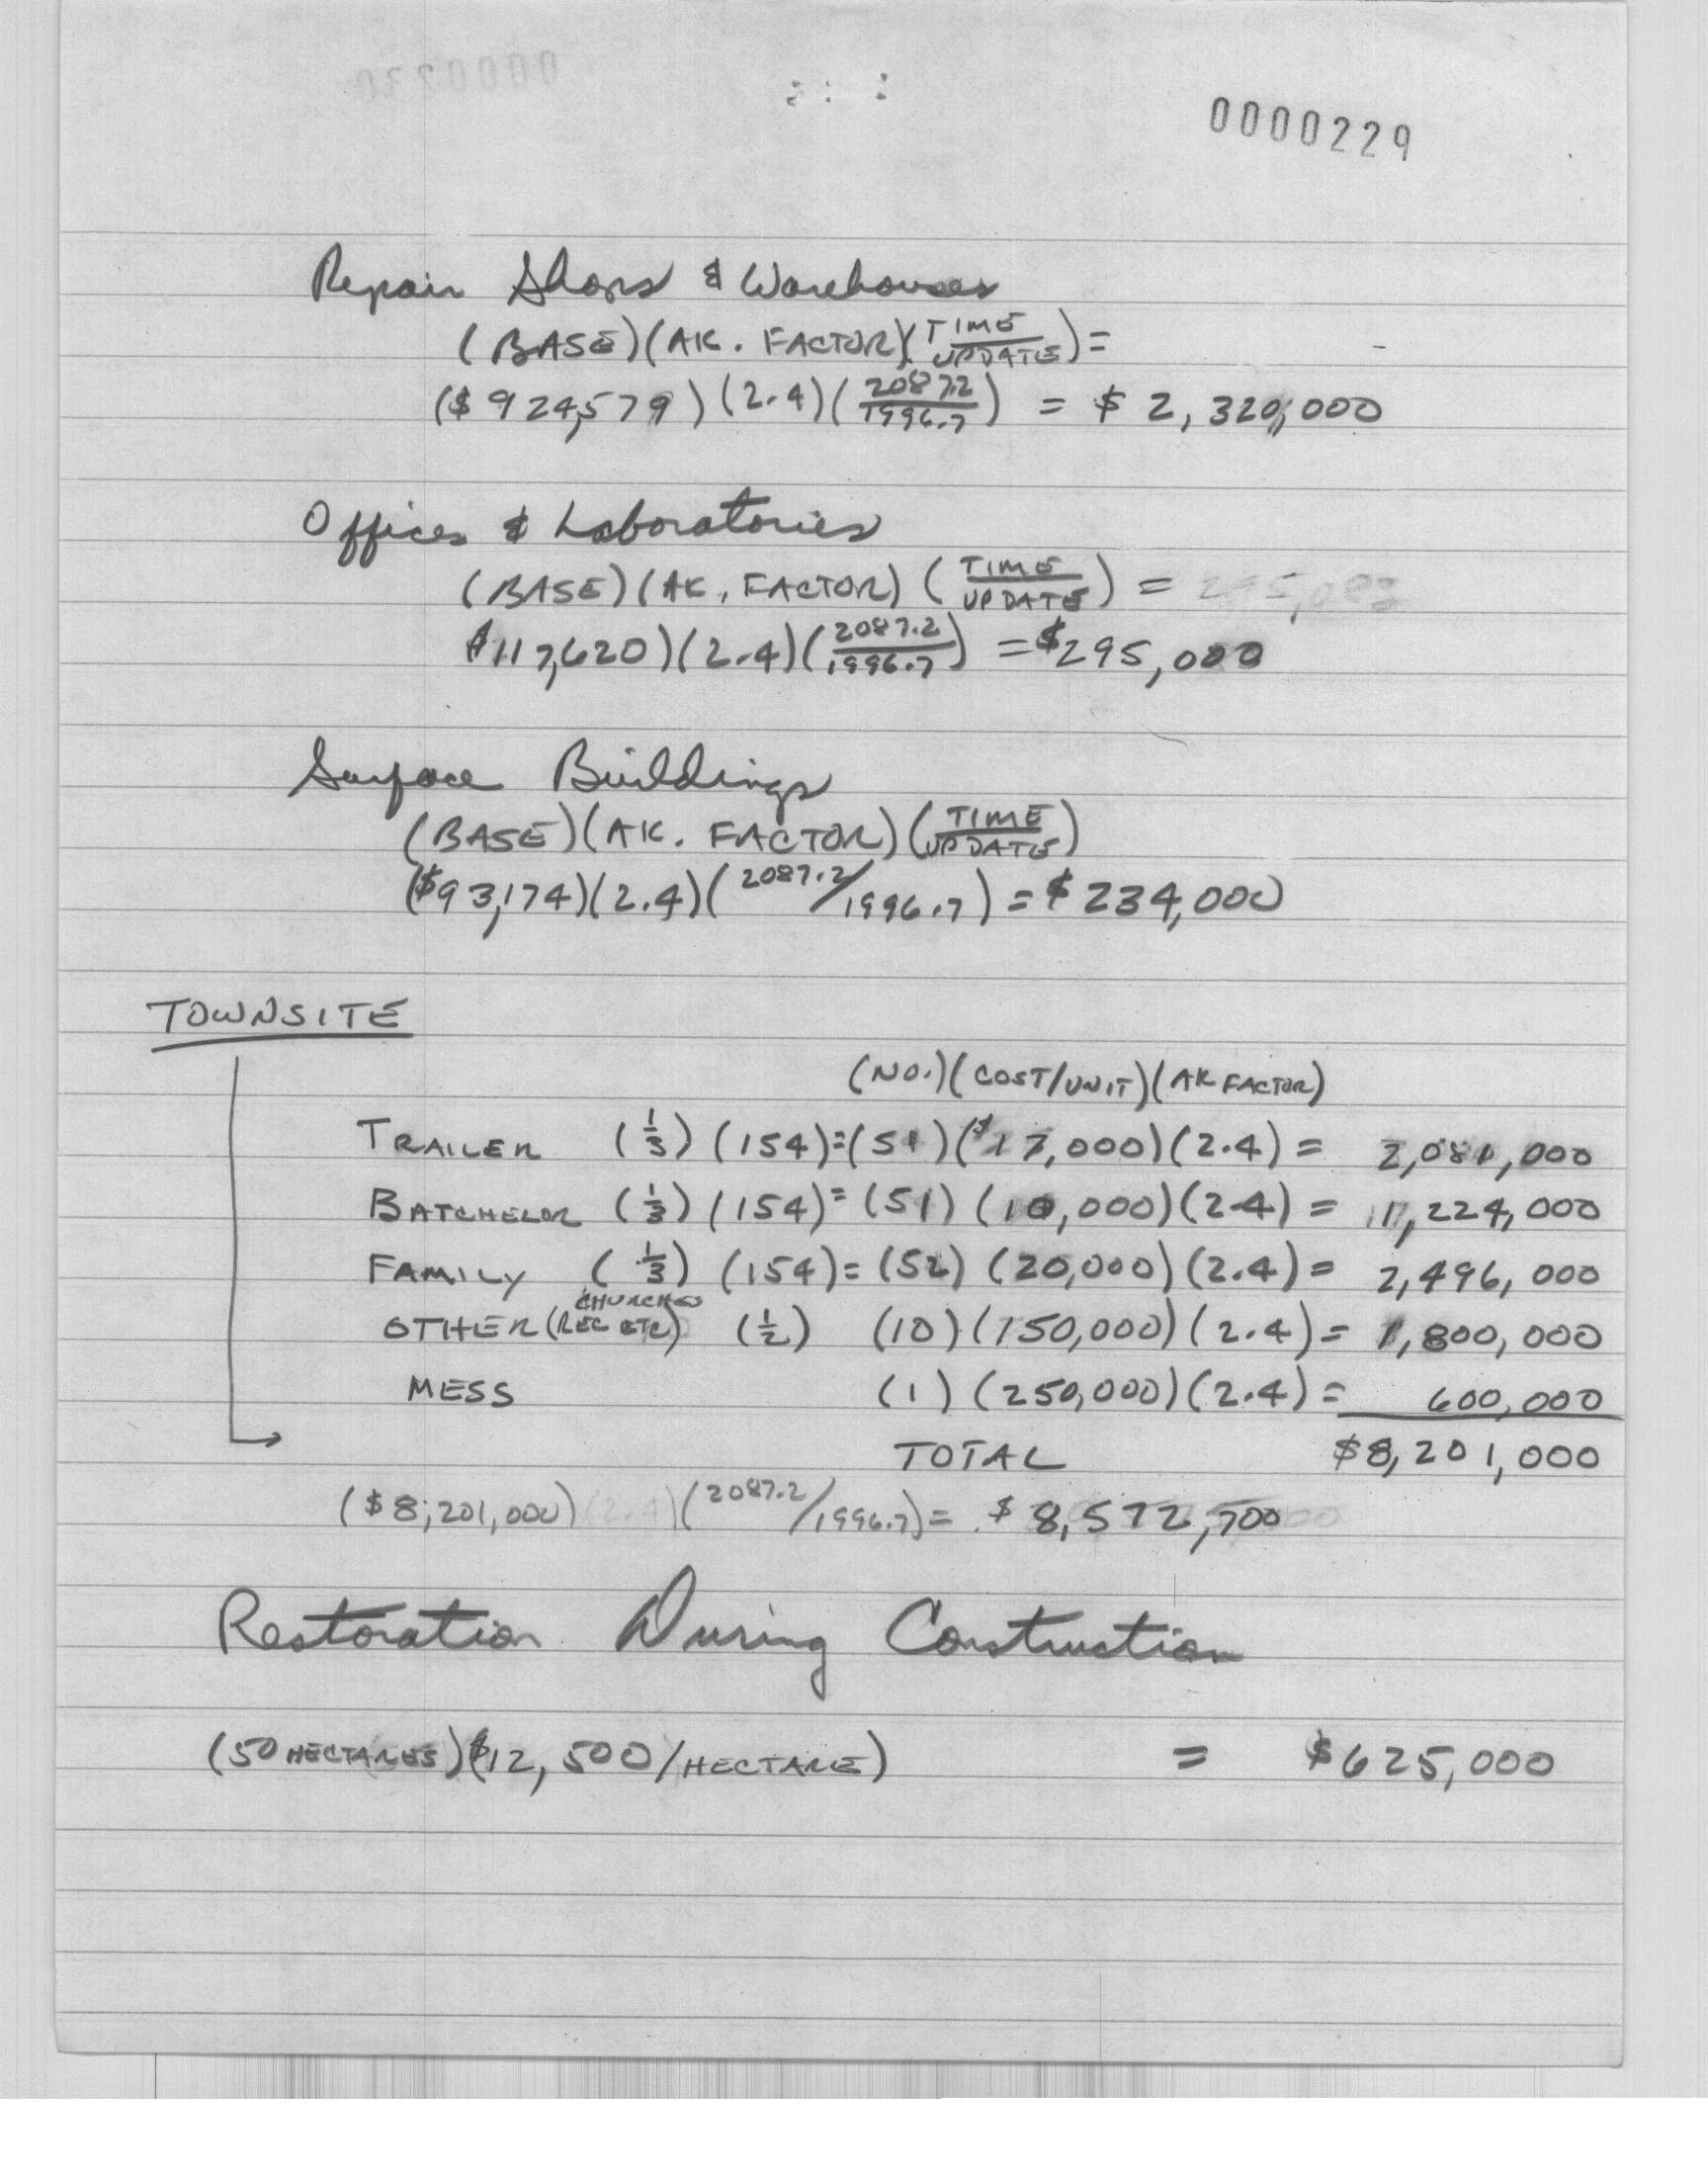 0000229
Repair Shops & Warehouses
(BASE)(AK. FACTOR)(TIME/UPDATE) =
($924,579)(2.4)(2087.2/1996.7) = $2,320,000
Offices & Laboratories
(BASE)(AK. FACTOR)(TIME/UPDATE) =
$117,620)(2.4)(2087.2/1996.7) = $295,000
Surface Buildings
(BASE)(AK. FACTOR)(TIME/UPDATE)
($93,174)(2.4)(2087.2/1996.7) = $234,000
TOWNSITE
(NO.)(COST/UNIT)(AK FACTOR)
TRAILER (1/3) (154)=(51)($17,000)(2.4) = 2,081,000
BATCHELOR (1/3) (154)=(51) (10,000)(2.4) = 1,224,000
FAMILY (1/3) (154)=(52) (20,000)(2.4) = 2,496,000
CHURCHES
OTHER (REC ETC) (1/2) (10)(150,000)(2.4) = 1,800,000
MESS (1)(250,000)(2.4) = 600,000
TOTAL $8,201,000
($8,201,000)(2.4)(2087.2/1996.7) = $8,572,700
Restoration During Construction
(50 HECTARES)($12,500/HECTARE) = $625,000